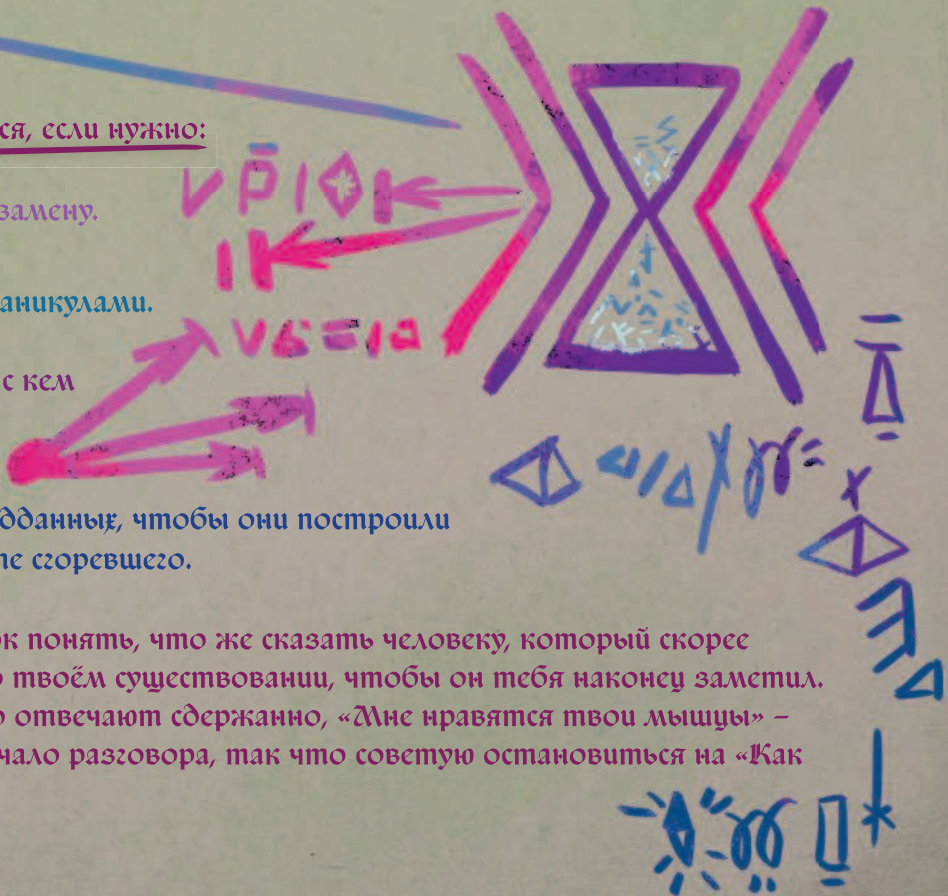 ся, если нужно:
замену.
аникулами.
с кем
дданных, чтобы они построили
сгоревшего.
понять, что же сказать человеку, который скорее
твоём существовании, чтобы он тебя наконец заметил.
отвечают сдержанно, «Мне нравятся твои мышцы» –
чало разговора, так что советую остановиться на «Как